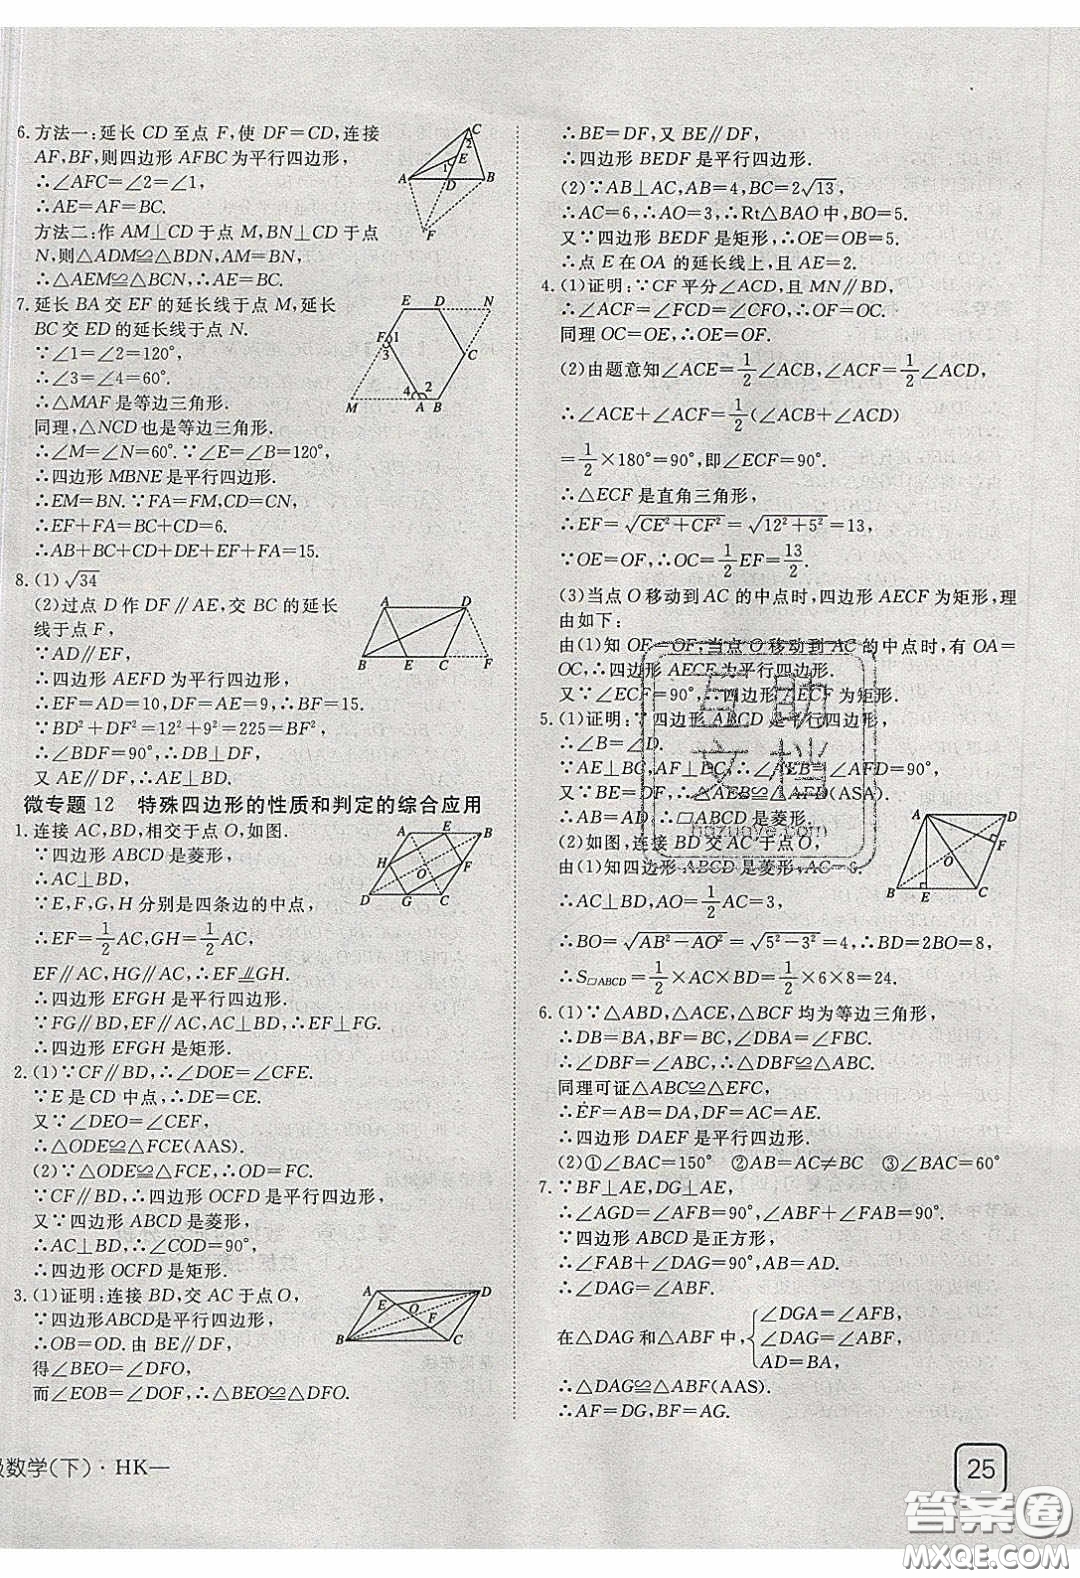 6. 方法一:延长 CD 至点 F,使 DF=CD,连接
AF,BF,则四边形 AFBC 为平行四边形,
∴∠AFC=∠2=∠1,
∴AE=AF=BC.
方法二:作 AM⊥CD 于点 M,BN⊥CD 于点
N,则△ADM≌△BDN,AM=BN,
∴△AEM≌△BCN,∴AE=BC.
7. 延长 BA 交 EF 的延长线于点 M,延长
BC 交 ED 的延长线于点 N.
∵∠1=∠2=120°,
∴∠3=∠4=60°.
∴△MAF 是等边三角形.
同理,△NCD 也是等边三角形.
∴∠M=∠N=60°.∵∠E=∠B=120°,
∴四边形 MBNE 是平行四边形.
∴EM=BN.∵FA=FM,CD=CN,
∴EF+FA=BC+CD=6.
∴AB+BC+CD+DE+EF+FA=15.
8. (1)√34
(2)过点 D 作 DF∥AE,交 BC 的延长
线于点 F,
∵AD∥EF,
∴四边形 AEFD 为平行四边形.
∴EF=AD=10,DF=AE=9,∴BF=15.
∵BD²+DF²=12²+9²=225=BF²,
∴∠BDF=90°,∴DB⊥DF,
又 AE∥DF,∴AE⊥BD.
微专题 12 特殊四边形的性质和判定的综合应用
1. 连接 AC,BD,相交于点 O,如图.
∵四边形 ABCD 是菱形,
∴AC⊥BD,
∵E,F,G,H 分别是四条边的中点,
∴EF=1/2AC,GH=1/2AC,
EF∥AC,HG∥AC,∴EF⫽GH.
∴四边形 EFGH 是平行四边形.
∵FG∥BD,EF∥AC,AC⊥BD,∴EF⊥FG.
∴四边形 EFGH 是矩形.
2. (1)∵CF∥BD,∴∠DOE=∠CFE.
∵E 是 CD 中点,∴DE=CE.
又∵∠DEO=∠CEF,
∴△ODE≌△FCE(AAS).
(2)∵△ODE≌△FCE,∴OD=FC.
∵CF∥BD,∴四边形 OCFD 是平行四边形,
又∵四边形 ABCD 是菱形,
∴AC⊥BD,∴∠COD=90°,
∴四边形 OCFD 是矩形.
3. (1)证明:连接 BD,交 AC 于点 O,
∵四边形ABCD是平行四边形,
∴OB=OD. 由 BE∥DF,
得∠BEO=∠DFO,
而∠EOB=∠DOF,∴△BEO≌△DFO.
∴BE=DF,又 BE∥DF,
∴四边形 BEDF 是平行四边形.
(2)∵AB⊥AC,AB=4,BC=2√13,
∴AC=6,∴AO=3,∴Rt△BAO 中,BO=5.
又∵四边形 BEDF 是矩形,∴OE=OB=5.
∴点 E 在 OA 的延长线上,且 AE=2.
4. (1)证明:∵CF 平分∠ACD,且 MN∥BD,
∴∠ACF=∠FCD=∠CFO,∴OF=OC.
同理 OC=OE,∴OE=OF.
(2)由题意知∠ACE=1/2∠ACB,∠ACF=1/2∠ACD,
∴∠ACE+∠ACF=1/2(∠ACB+∠ACD)
=1/2×180°=90°,即∠ECF=90°,
∴△ECF 是直角三角形,
∴EF=√CE²+CF²=√12²+5²=13,
∵OE=OF,∴OC=1/2EF=13/2.
(3)当点 O 移动到 AC 的中点时,四边形 AECF 为矩形,理
由如下:
由(1)知 OE=OF,当点 O 移动到 AC 的中点时,有 OA=
OC,∴四边形 AECF 为平行四边形.
又∵∠ECF=90°,∴四边形 AECF 为矩形.
5. (1)证明:∵四边形 ABCD 是平行四边形,
∴∠B=∠D.
∵AE⊥BC,AF⊥DC,∴∠AEB=∠AFD=90°,
又∵BE=DF,∴△AEB≌△AFD(ASA).
∴AB=AD,∴□ABCD 是菱形.
(2)如图,连接 BD 交 AC 于点 O,
由(1)知四边形 ABCD 是菱形,AC=6,
∴AC⊥BD,AO=1/2AC=3,
∴BO=√AB²−AO²=√5²−3²=4,∴BD=2BO=8,
∴S□ABCD=1/2×AC×BD=1/2×6×8=24.
6. (1)∵△ABD,△ACE,△BCF 均为等边三角形,
∴DB=BA,BF=BC,∠DBA=∠FBC.
∴∠DBF=∠ABC,∴△DBF≌△ABC.
同理可证△ABC≌△EFC,
∴EF=AB=DA,DF=AC=AE.
∴四边形 DAEF 是平行四边形.
(2)①∠BAC=150° ②AB=AC≠BC ③∠BAC=60°
7. ∵BF⊥AE,DG⊥AE,
∴∠AGD=∠AFB=90°,∠ABF+∠BAF=90°,
∵四边形 ABCD 是正方形,
∴∠FAB+∠DAG=90°,AB=AD,
∴∠DAG=∠ABF.
在△DAG 和△ABF 中,
∠DGA=∠AFB,
∠DAG=∠ABF,
AD=BA,
∴△DAG≌△ABF(AAS).
∴AF=DG,BF=AG.
级数学(下)·HK—
25
互助
文档
答案圈
MXQE.COM